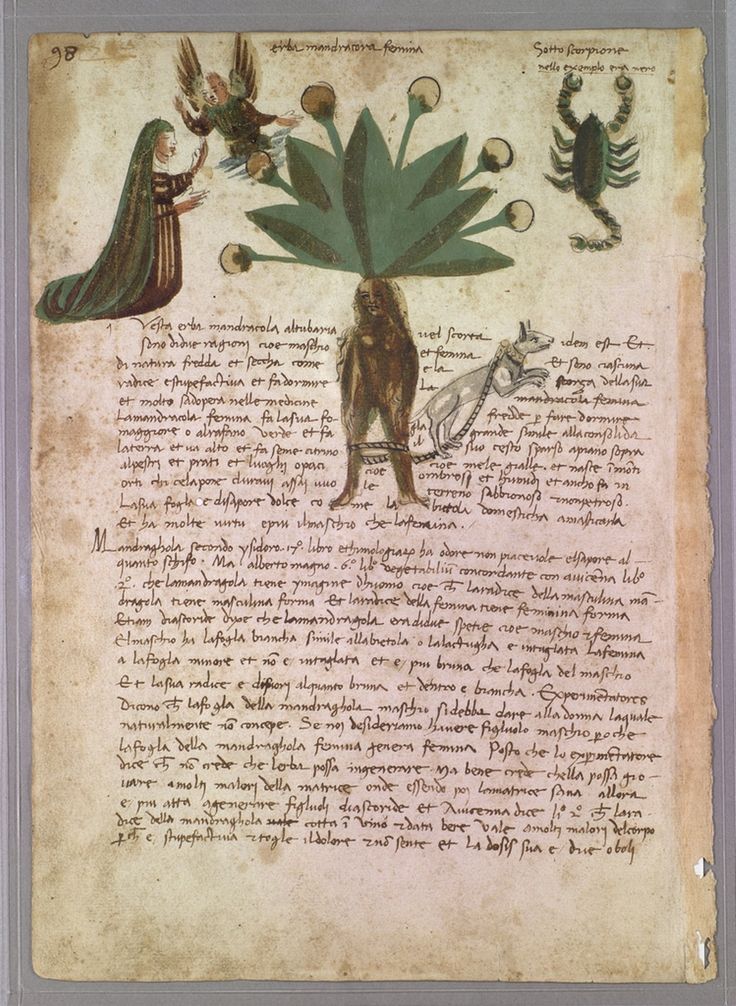 98
erba mandracora femina
Sotto scorpione
nello exemplo era nero
Vesta erba mandracola altubaria vel scorta idem est. Et.
sono didue ragioni cioe maschio et femina Et sono ciascuna
di natura fredda et seccha come e la scorça della sua
radice estupefactiva et fa dormire La mandracola femina
et molto sadopera nelle medicine fredde p fare dormire
Lamandracola femina fa la sua fogla grande simile alla consolida
maggiore o alrafano verde et fa il suo cesto sparso apiano sopra
laterra et va alto et fa seme citrino cioe mele gialle. et naste i moti
alpestri et prati et luoghi opaci ombrosi et humidi et ancho fa in
orti chi celapone duravi assai vivo le terreno sabbionoso & non petroso.
Lasua fogla e disapore dolce come la bietola domesticha amasticarla
Et ha molte virtu epiu ilmaschio che lafemina.
Mandraghola secondo ysidoro. 17º. libro ethimologiarum ha odore non piacevole elsapore al
quanto schifo. Ma. alberto magno. 6º. libº vegetabiliu concordante con avicena libº
2º. che lamandragola tiene ymagine dhuomo cioe ch laradice della masculina man
dragola tiene masculina forma Et laradice della femina tiene feminina forma
Etiam diascoride dice che lamandragola era didue spetie cioe maschio & femina
Elmaschio ha lafogla biancha simile allabietola o lalactugha e intaglata Lafemina
a lafogla minore et no e intaglata et e piu bruna che lafogla del maschio
Et lasua radice e difuori alquanto bruna et dentro e biancha. Experimetatores
Dicono ch lafogla della mandraghola maschio sidebba dare alla donna laquale
naturalmente no concepe. Se noi desideriamo havere figluolo maschio p oche
lafogla della mandraghola femina genera femina Posto che lo experimetatore
dice ch no crede che lerba possa ingenerare. Ma bene crede chella possa gio
vare amolti malori della matrice onde essendo poi lamatrice sana allora
e piu atta agenerare figluoli diascoride et Avicenna dice liº 2º ch lara
dice della mandraghola cotta i vino & data bere vale amolti malori delcorpo
p ch e stupefactiva & togle ildolore & no sente et la dosis sua e due oboli